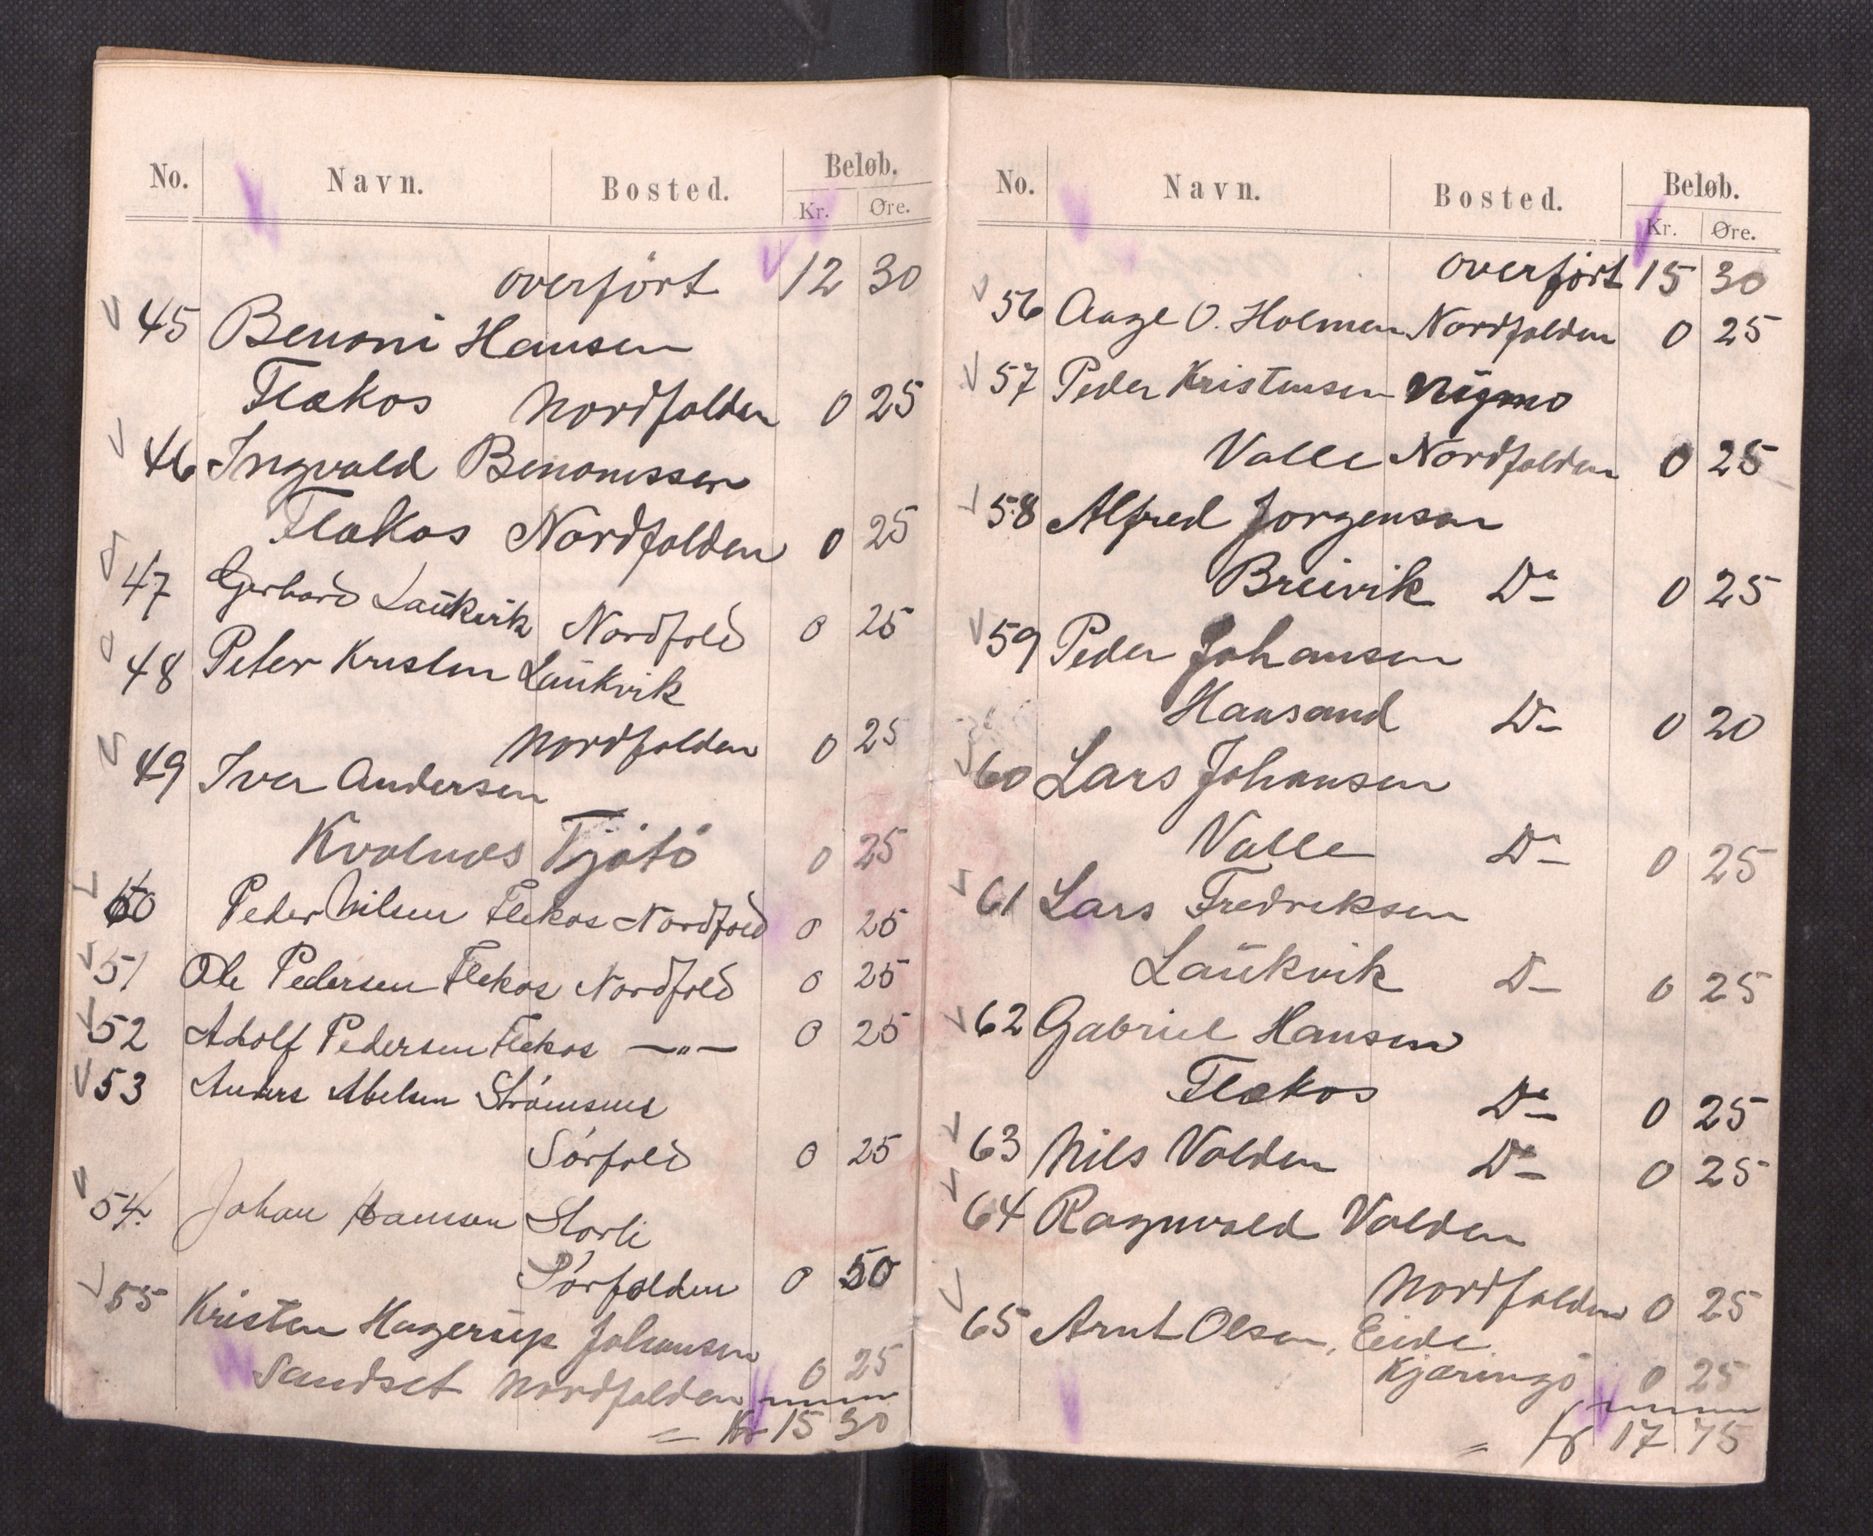 No. Navn. Bosted. Beløb.
Kr. Øre.
overført 12 30
45 Benoni Hansen
Flækos Nordfolden 0 25
46 Ingvald Benonissen
Flakos Nordfolden 0 25
47 Gerhard Laukvik Nordfold 0 25
48 Peter Kristen Laukvik
Nordfolden 0 25
49 Iver Andersen
Kvalnæs Tjøtö 0 25
50 Peder Nilsen Flekos Nordfold 0 25
51 Ole Pedersen Flekos Nordfold 0 25
52 Adolf Pedersen Flekos —"— 0 25
53 Anders Abelsen Strømsnes
Sørfold 0 25
54. Johan Hansen Storli
Sørfolden 0 50
55 Kristen Hagerup Johansen
Sandset Nordfolden 0 25
= Kr 15 30
No. Navn. Bosted. Beløb.
Kr. Øre.
overført 15 30
56 Aage O. Holmen Nordfolden 0 25
57 Peder Kristensen Nygmo
Valle Nordfolden 0 25
58 Alfred Jorgensen
Breivik Do 0 25
59 Peder Johansen
Hansand Do 0 20
60 Lars Johansen
Valle Do 0 25
61 Lars Fredriksen
Laukvik Do 0 25
62 Gabriel Hansen
Flækos Do 0 25
63 Nils Valden Do 0 25
64 Ragnvald Valden
Nordfolden 0 25
65 Arnt Olsen, Eide
Kjæringø 0 25
= Kr 17 75